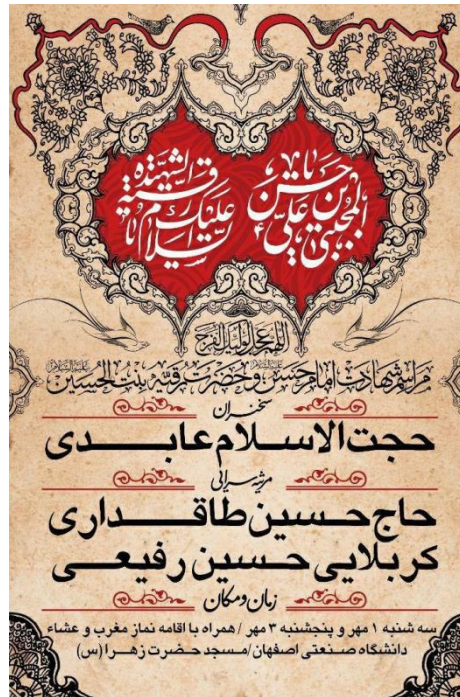 یا حسن بن علی المجتبی
السلام علیک یا رقیة الشهیدة
اللهم عجل لولیک الفرج
مراسم شهادت امام حسن و حضرت رقیه بنت الحسین
سخنران
حجت الاسلام عابدی
مرثیه سرائی
حاج حسین طاقداری
کربلایی حسین رفیعی
زمان و مکان
سه شنبه ۱ مهر و پنجشنبه ۳ مهر / همراه با اقامه نماز مغرب و عشاء
دانشگاه صنعتی اصفهان/مسجد حضرت زهرا(س)